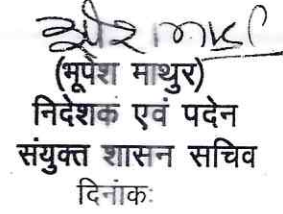 (भूपेश माथुर)
निदेशक एवं पदेन
संयुक्त शासन सचिव
दिनांकः